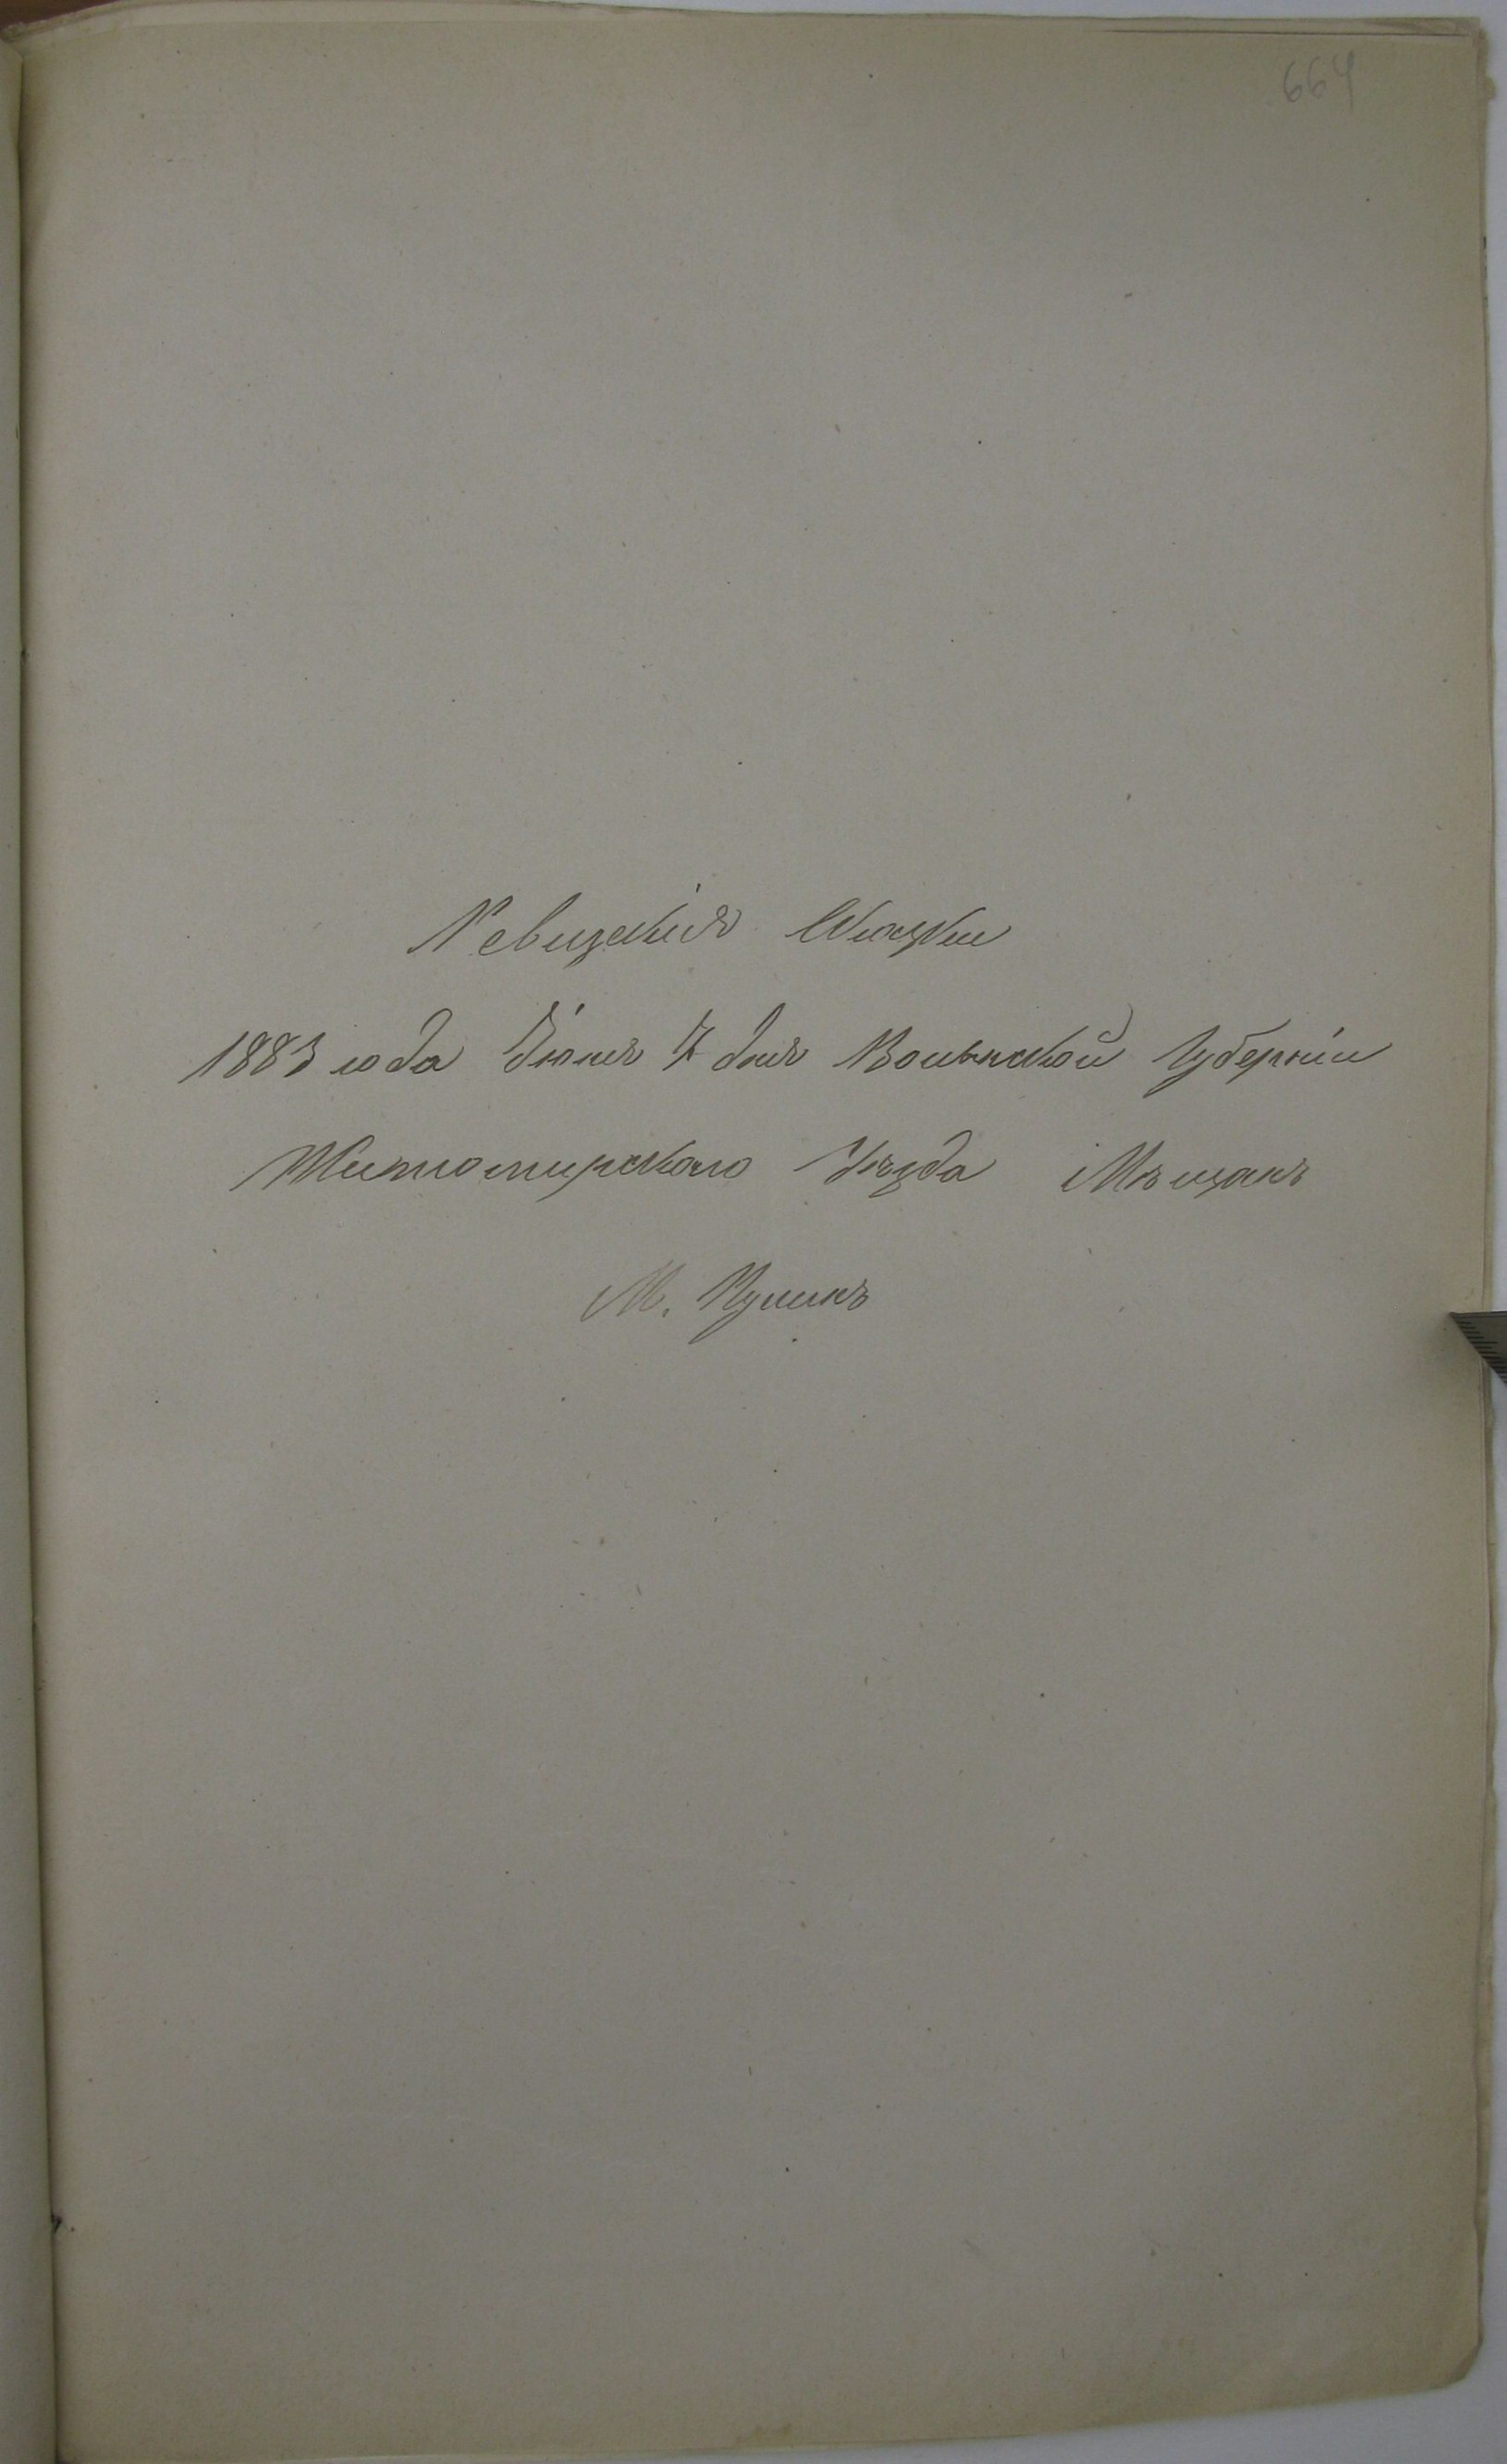 664
Ревизскія Сказки
1883 года Іюня 7 дня Волынской Губерніи
Житомирскаго Уѣзда Мѣщанъ
М. Пулинъ